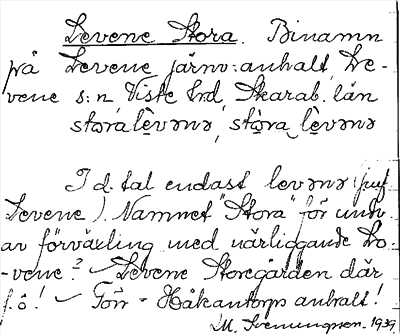 Levene Stora. Binamn
på Levene järnv:anhalt, Le-
vene s:n, Viste hrd, Skarab. län
stora lèvənə, stò̱ra lèvənə
I d. tal endast levənə (jmf
Levene). Namnet "Stora" för undv.
av förväxling med närliggande Le-
-vene? ✓ Levene Storegården där
f.ö.! ✓ Förr = Håkantorps anhalt!
M. Svenungsson. 1939